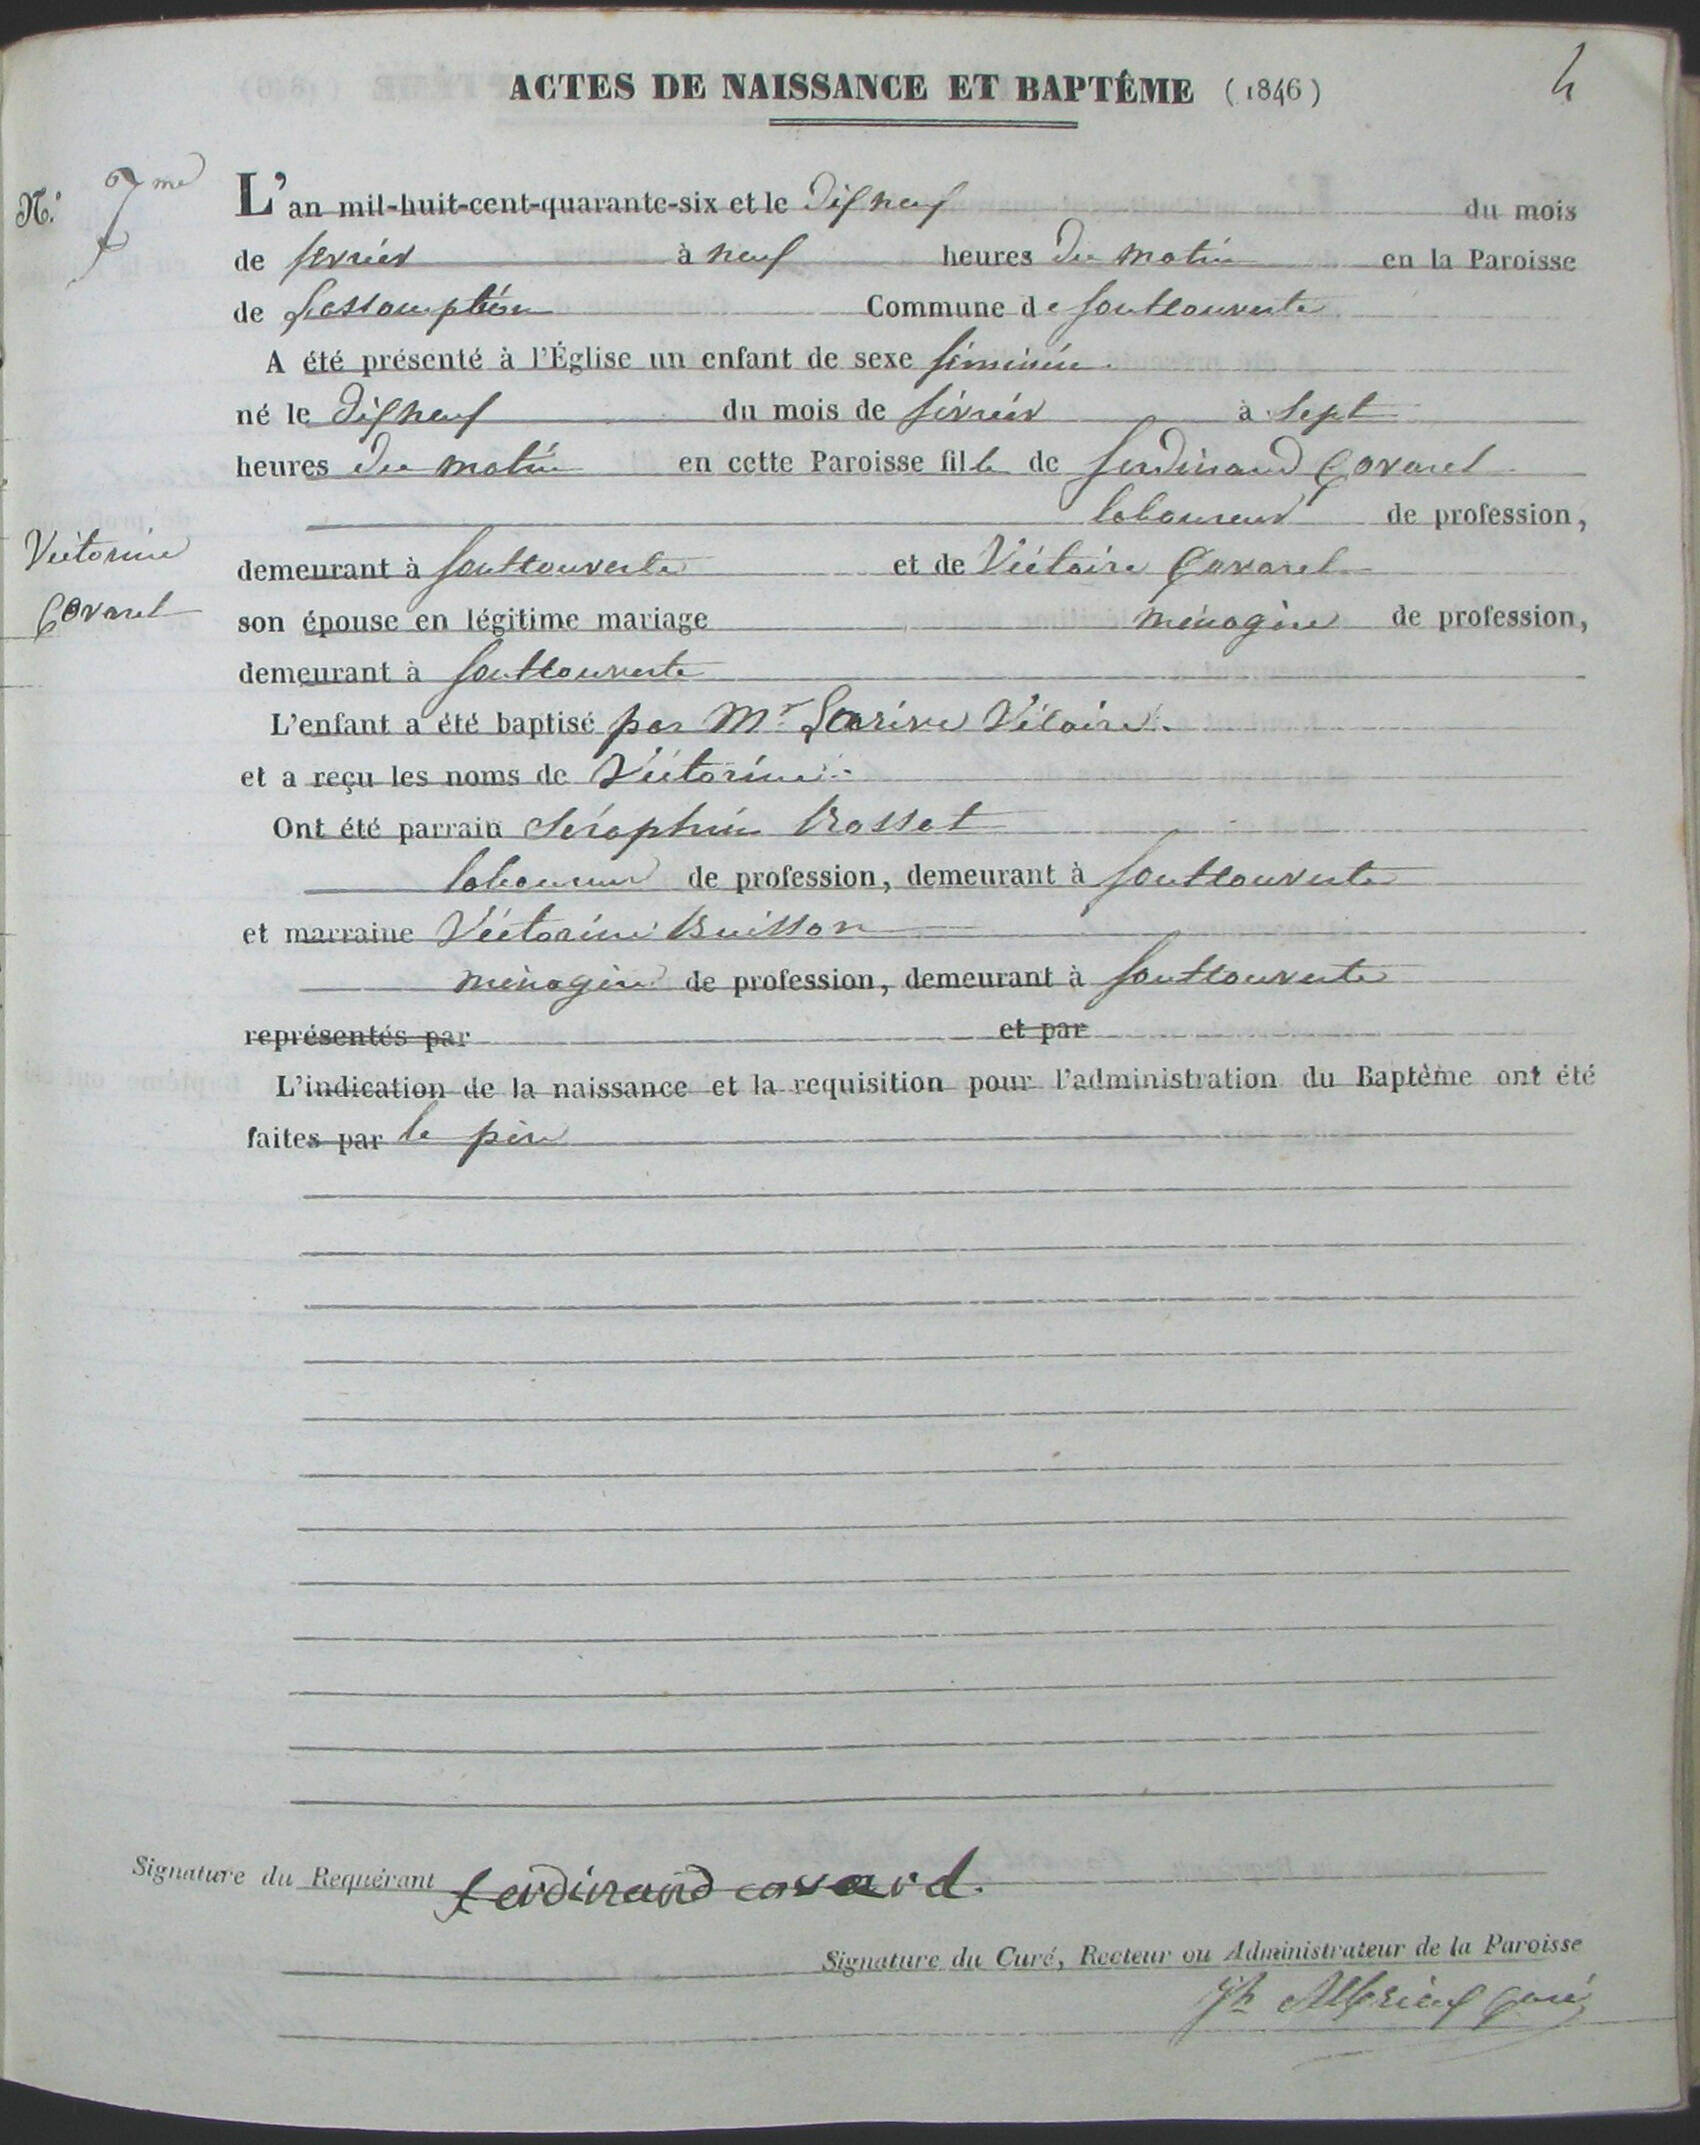 ACTES DE NAISSANCE ET BAPTÊME (1846)
4
N.° 7me
L'an mil-huit-cent-quarante-six et le dixneuf du mois
de fevrier à neuf heures du matin en la Paroisse
de Lassomption Commune de fonttouverte
A été présenté à l'Église un enfant de sexe féminin.
né le dixneuf du mois de février à sept
heures du matin en cette Paroisse fille de ferdinand Covarel
laboureur de profession,
Victorine
Covarel
demeurant à fonttouverte et de Victoire Covarel
son épouse en légitime mariage ménagère de profession,
demeurant à fonttouverte
L'enfant a été baptisé par Mr. Larive Vicaire.
et a reçu les noms de Victorine
Ont été parrain Séraphin Rossat
laboureur de profession, demeurant à fonttouverte
et marraine Victorine Buisson
ménagère de profession, demeurant à fonttouverte
représentés par et par
L'indication de la naissance et la requisition pour l'administration du Baptême ont été
faites par le père
Signature du Requérant ferdinand covarel.
Signature du Curé, Recteur ou Administrateur de la Paroisse
curé